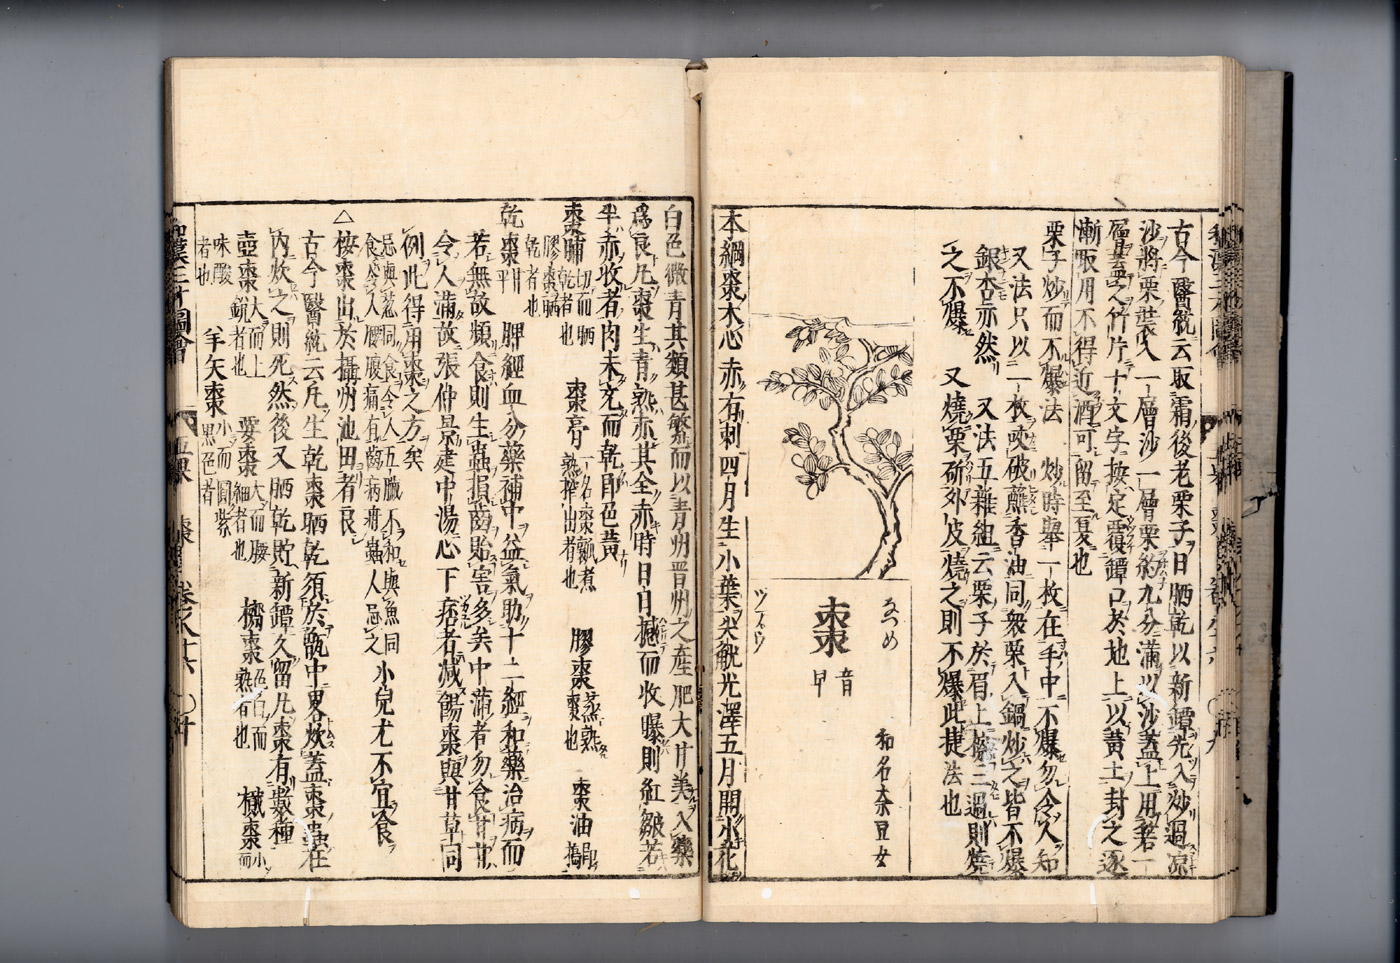 古今醫統云取霜後老栗子日晒乾以新罈先入炒過凉
沙將栗裝入一層沙一層栗約九分滿以沙蓋上用箬一
層蓋之竹片十文字按定覆罈口於地上以黄土封之逐
漸取用不得近酒可留至夏也
栗子炒而不爆法 炒時擧一枚在手中不爆勿令人知
又法只以一枚咬破蘸香油同衆栗入鍋炒之皆不爆
銀杏亦然 又法五雜組云栗子於眉上擦三過則燒
之不爆 又燒栗斫外皮燒之則不爆此捷法也
なつめ
棗
音
早
ツァ゚ウ
和名奈豆女
本綱棗木心赤有刺四月生小葉尖觥光澤五月開小花
白色微青其類甚繁而以青州晋州之産肥大甘美入藥
爲良凡棗生青熟赤其全赤時日日撼而收曝則紅皺若
半赤收者肉未充而乾即色黄
棗脯 切而晒乾者也 棗膏 一名棗瓤煮熟搾出者也 膠棗 蒸熟棗也 棗油 搗
膠棗晒乾者也
乾棗 甘平 脾經血分藥補中益氣助十二經和藥治病而
若無故頻食則生蟲損齒貽害多矣中滿者勿食甘甘
令人滿故張仲景建中湯心下痞者減餳棗與甘草同
例此得用棗之方矣
忌與葱同食令人五臟不和與魚同食令人腰腹痛有齒病疳蟲人忌之 小兒尤不宜食
△按棗出於攝州池田者良
古今醫統云凡生乾棗晒乾須於甑中畧炊蓋棗蟲在
内炊之則死然後又晒乾貯新罈久留凡棗有數種
壺棗 大而上鋭者也 要棗 大而腰細者也 櫅棗 色白而熟者也 樲棗 小而
味酸者也 羊矢棗 小而圓紫黒色者
和漢三才圖會 五果 棗 卷之八十六 ○ 廿